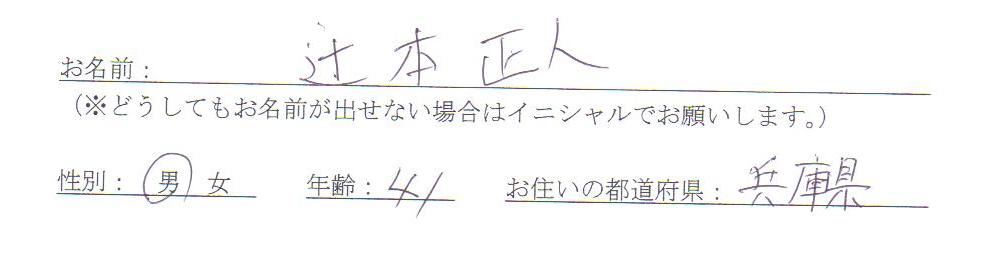 お名前： 辻本 正人
（※どうしてもお名前が出せない場合はイニシャルでお願いします。）
性別： 男 女 年齢： 41 お住いの都道府県： 兵庫県